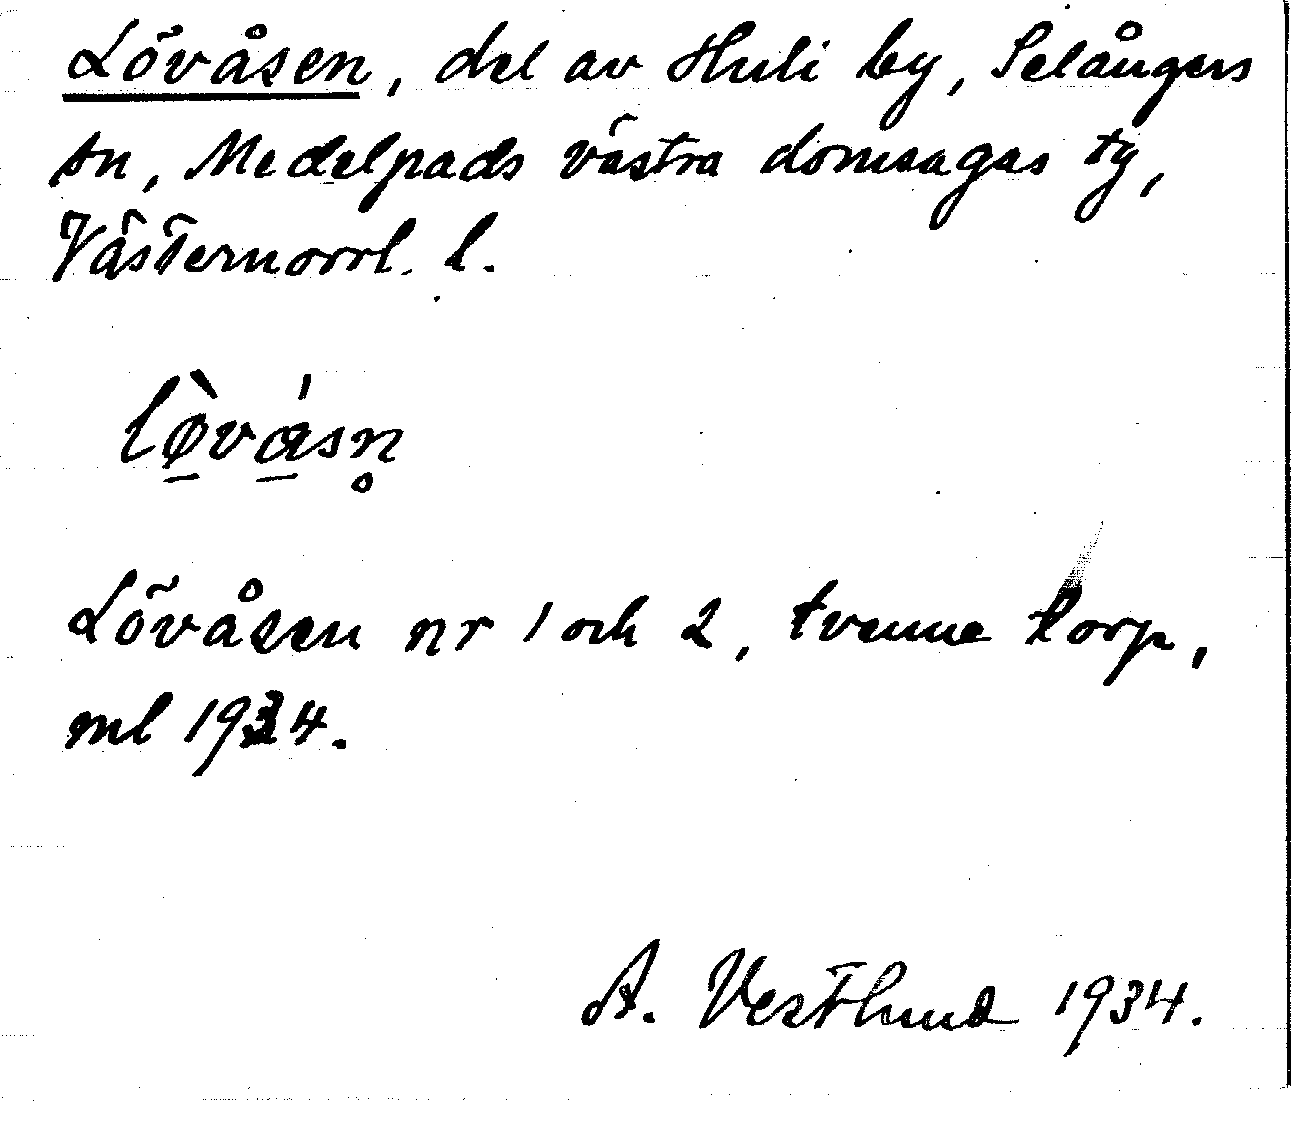 Lövåsen, del av Huli by, Selångers
sn, Medelpads västra domsagas tg,
Västernorrl. l.
lø̱̀vá̱sn̥
Lövåsen nr 1 och 2, tvenne torp,
ml 1934.
A. Vestlund 1934.